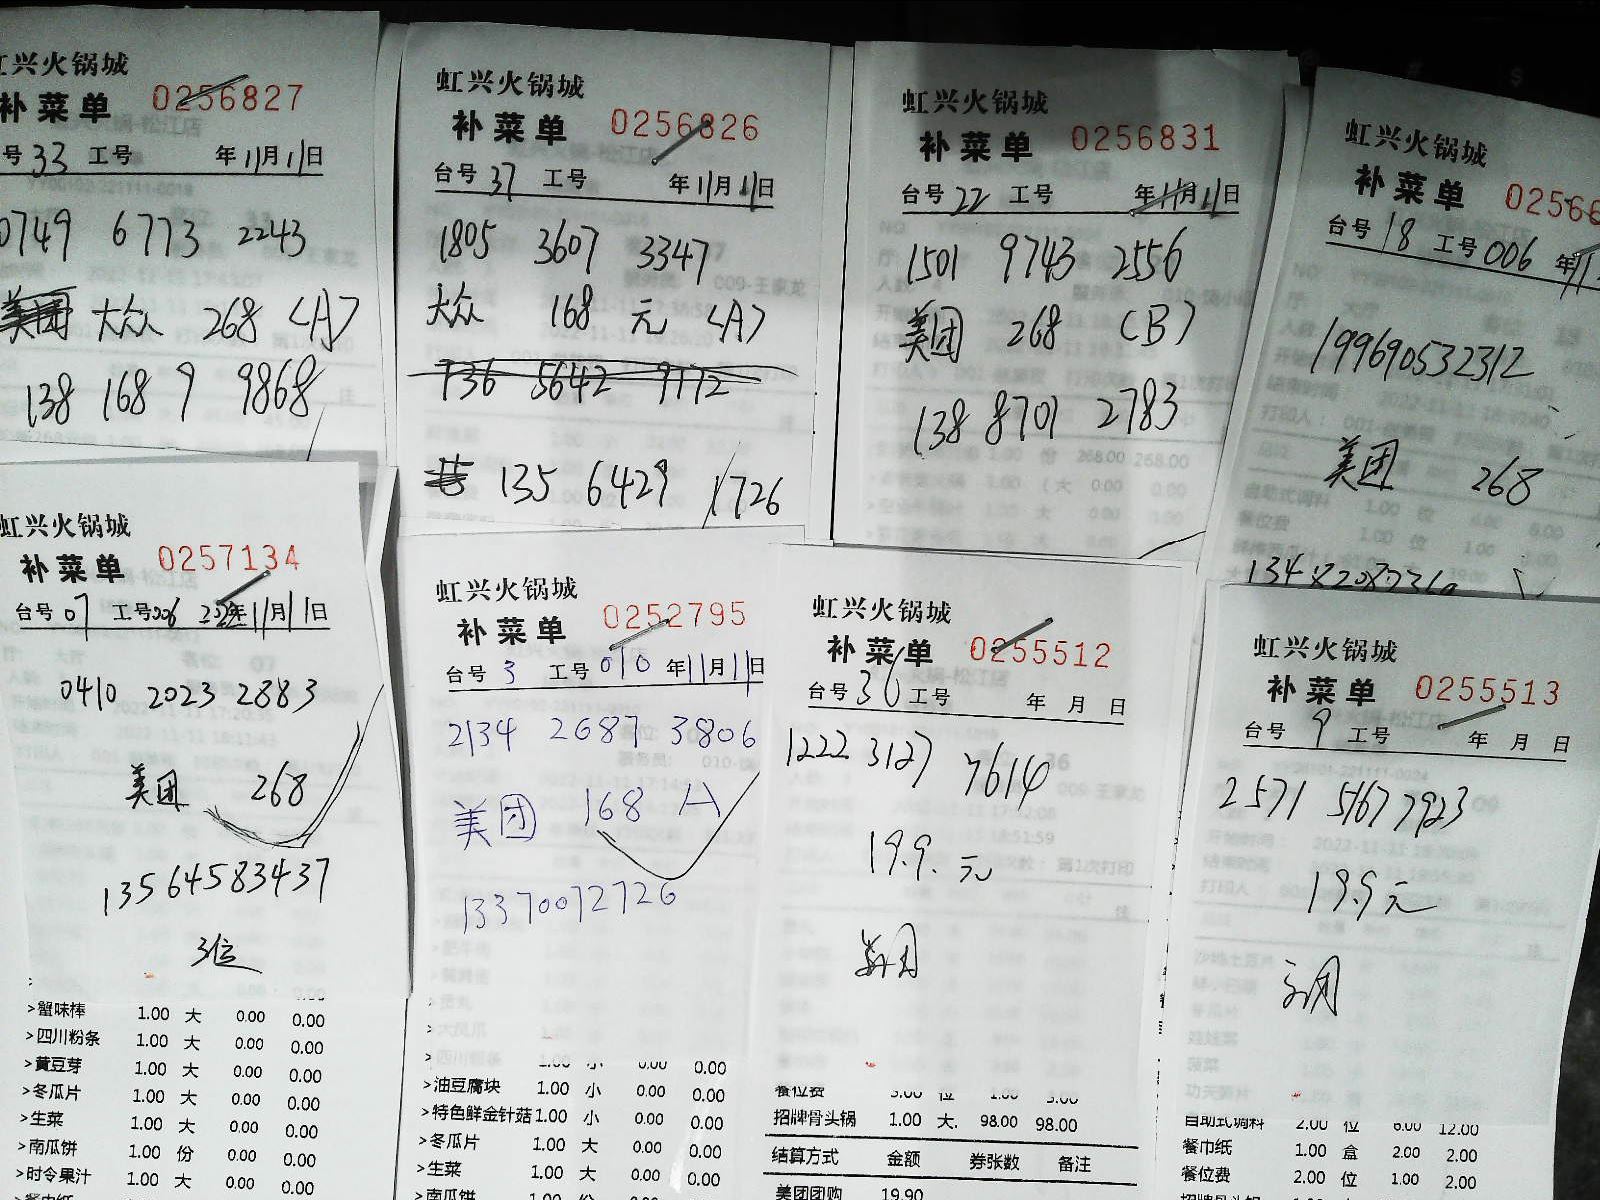 虹兴火锅城
补菜单 0256827
号 33 工号 年11月11日
0749 6773 2243
大众 268 (A)
138 168 9 9868
虹兴火锅城
补菜单 0256826
台号 37 工号 年11月11日
1805 3607 3347
大众 168 元 (A)
136 5642 9172
135 6429 1726
虹兴火锅城
补菜单 0256831
台号 22 工号 年11月11日
1501 9743 2556
美团 268 (B)
138 8701 2783
268.00 268.00
虹兴火锅城
补菜单 02566
台号 18 工号 006 年11
199690532312
美团 268
虹兴火锅城
补菜单 0257134
台号 07 工号 006 年11月11日
0410 2023 2883
美团 268
13564583437
3位
>蟹味棒 1.00 大 0.00 0.00
>四川粉条 1.00 大 0.00 0.00
>黄豆芽 1.00 大 0.00 0.00
>冬瓜片 1.00 大 0.00 0.00
>生菜 1.00 大 0.00 0.00
>南瓜饼 1.00 份 0.00 0.00
>时令果汁 1.00 大 0.00 0.00
虹兴火锅城
补菜单 0252795
台号 3 工号 010 年11月11日
2134 2687 3806
美团 168 A
13370072726
>四川粉条 1.00 小 0.00 0.00
>油豆腐块 1.00 小 0.00 0.00
>特色鲜金针菇 1.00 小 0.00 0.00
>冬瓜片 1.00 大 0.00 0.00
>生菜 1.00 大 0.00 0.00
>南瓜饼 1.00 份 0.00 0.00
虹兴火锅城
补菜单 0255512
台号 36 工号 年 月 日
1222 3127 7614
19.9. 元
美团
餐位费 3.00 位 1.00 3.00
招牌骨头锅 1.00 大. 98.00 98.00
结算方式 金额 券张数 备注
美团团购 19.90
虹兴火锅城
补菜单 0255513
台号 9 工号 年 月 日
2571 5167 7923
19.9元
美团
自助式调料 2.00 位 6.00 12.00
餐巾纸 1.00 盒 2.00 2.00
餐位费 2.00 位 1.00 2.00